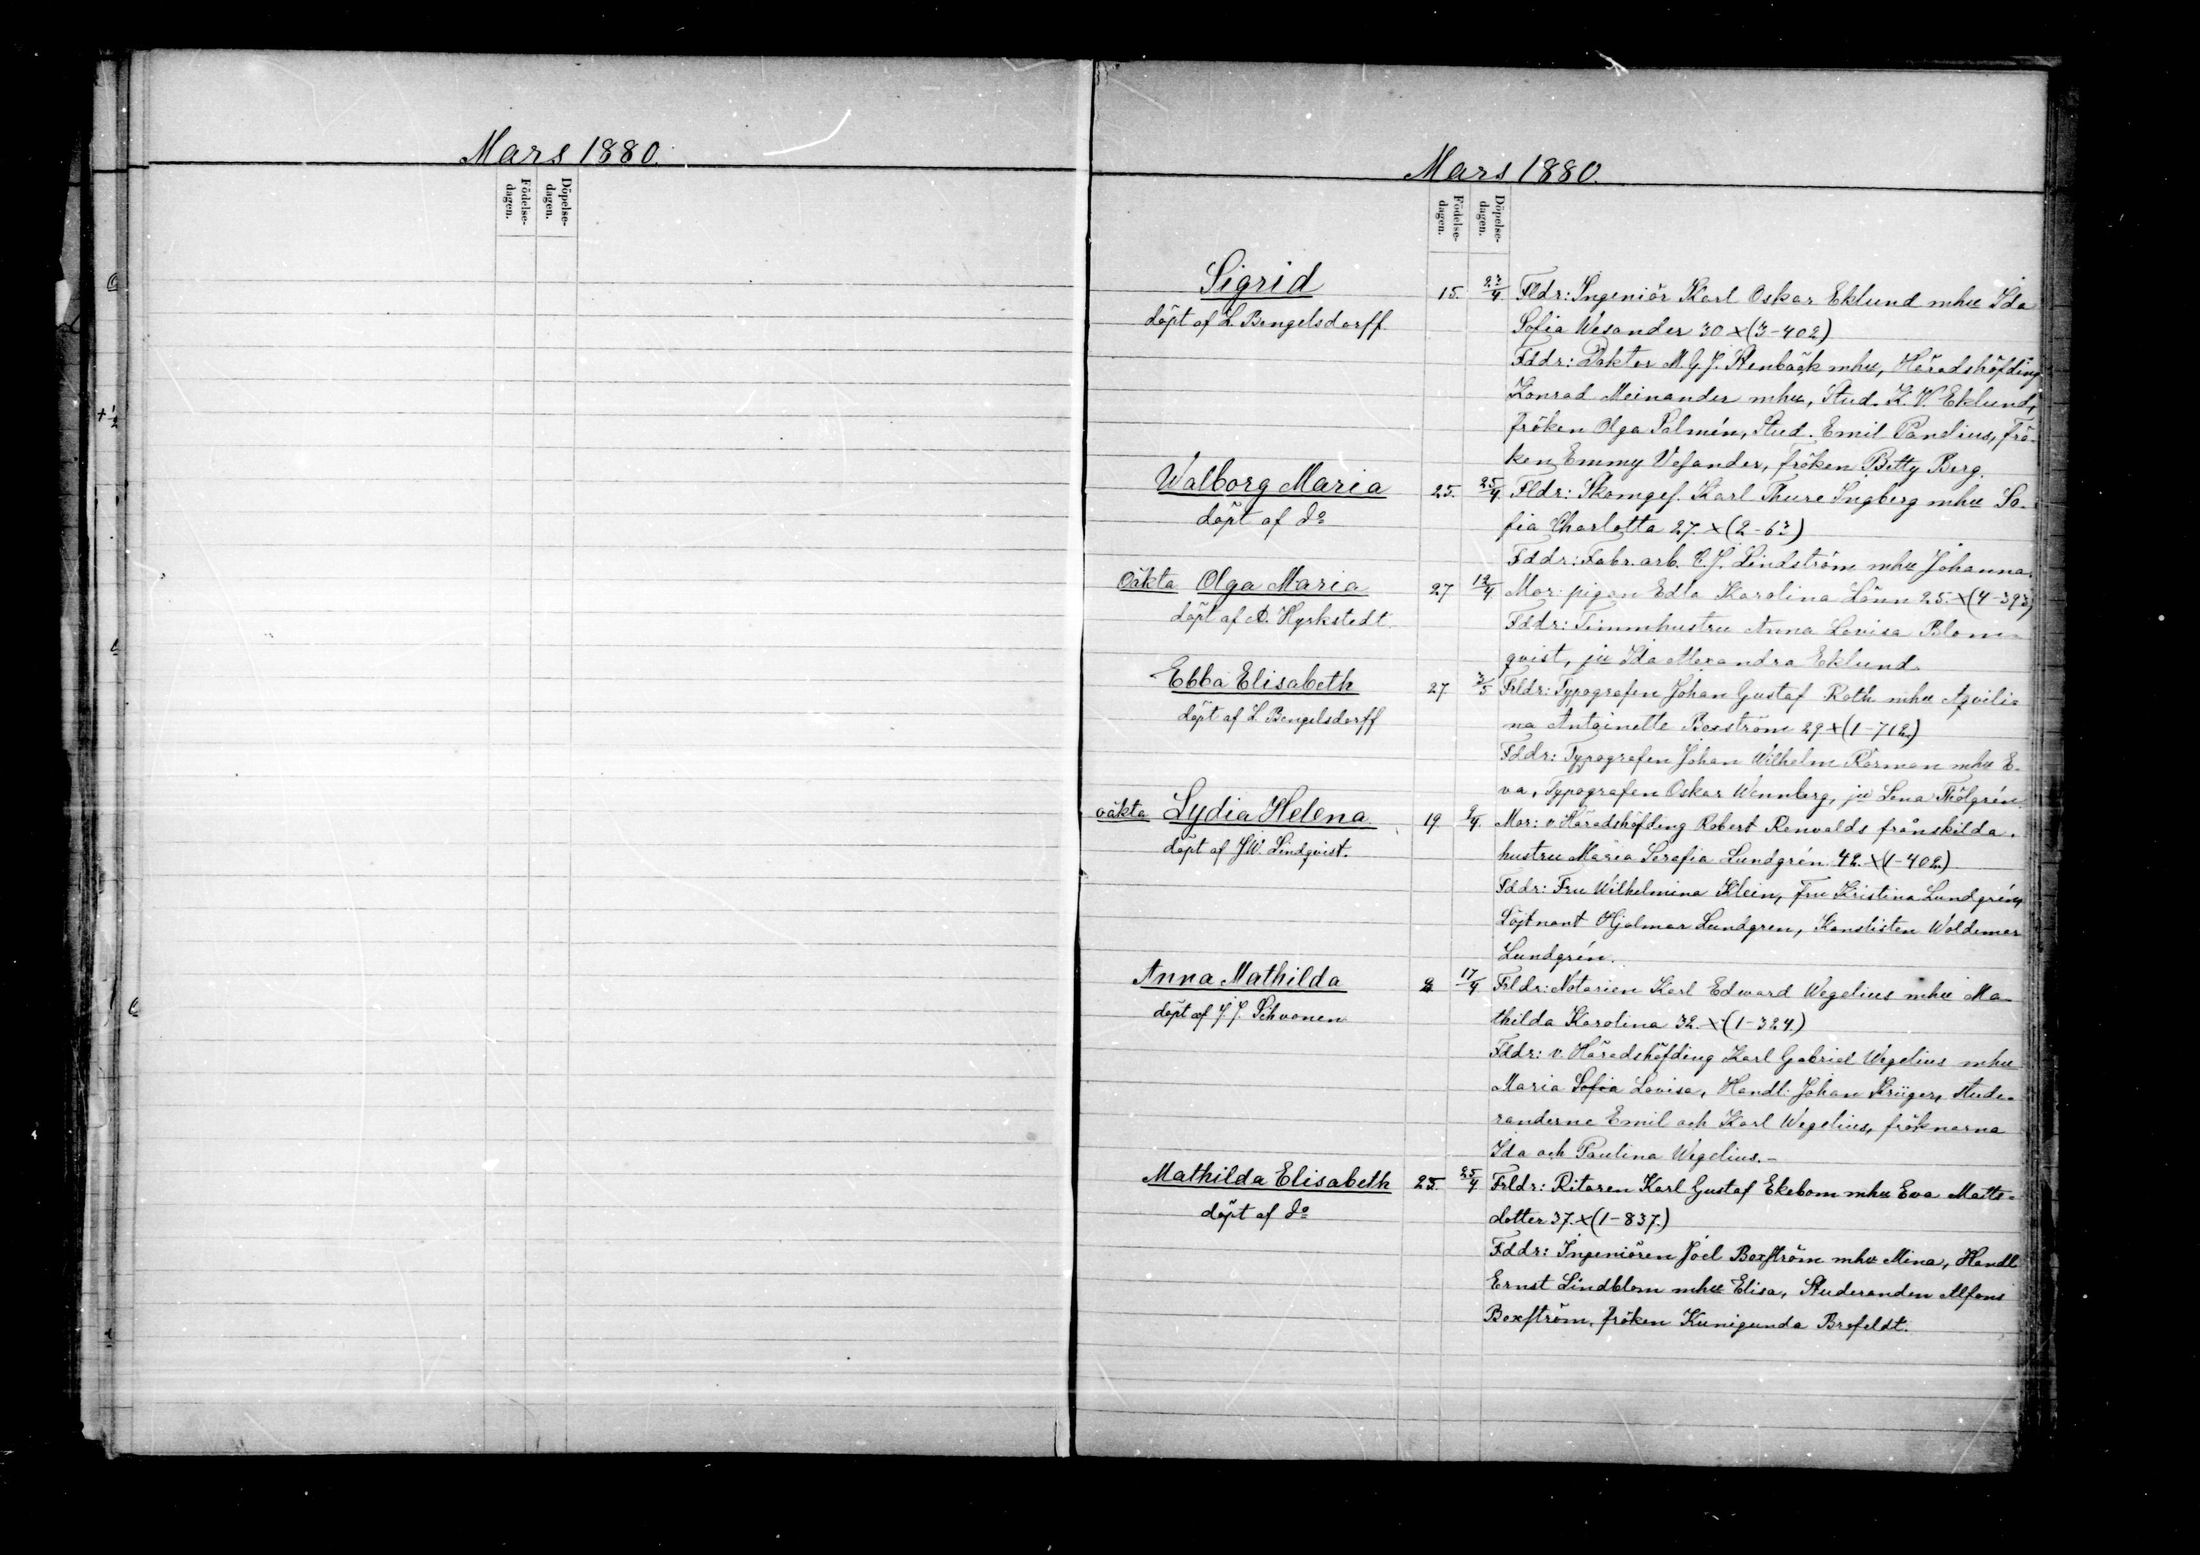 Mars 1880.
Födelse-
dagen.
Döpelse-
dagen.
Mars 1880.
Födelse-
dagen.
Döpelse-
dagen.
Sigrid 15. 23/4 Fldr: Ingeniör Karl Oskar Eklund mhu Ida
döpt af L. Bengelsdorff. Sofia Wesander 30 x (3-402)
Fddr: Doktor M. G. J. Stenbäck mhu, Häradshöfding
Konrad Meinander mhu, Stud. K. V. Eklund,
fröken Olga Palmén, Stud. Emil Pandius, frö-
ken Emmy Vesander, fröken Betty Berg.
Walborg Maria 25. 25/4 Fldr: Skomges. Karl Thure Ingberg mhu So-
döpt af do fia Charlotta 27. x (2-63)
Fddr: Fabr. arb. C. J. Lindström mhu Johanna.
Oäkta Olga Maria 27 12/4 Mor: pigan Edla Karolina Lönn 25. x (4-393)
döpt af A. Hyrkstedt. Fddr: Timmhustru Anna Lovisa Blom-
qvist, ju Ida Alexandra Eklund.
Ebba Elisabeth 27 3/5 Frldr: Typografen Johan Gustaf Roth mhu Aqvili-
döpt af L Bengelsdorff na Antoinette Boxström 29 x (1-712)
Fddr: Typografen Johan Wilhelm Rörman mhu E-
va, Typografen Oskar Wennberg, ju Lena Thölgrén
oäkta Lydia Helena 19 9/4. Mor: v. Häradshöfding Robert Renvalds frånskilda
döpt af J. W. Lindqvist. hustru Maria Serafia Lundgrén 42. x (1-402)
Fddr: Fru Wilhelmina Klein, fru Kristina Lundgrén,
Löjtnant Hjalmar Lundgren, Kanslisten Woldemar
Lundgrén.
Anna Mathilda 8 17/4 Frldr: Notarien Karl Edward Wegelius mhu Ma-
döpt af J. J. Schvonen thilda Karolina 32. x (1-324)
Fddr: v. Häradshöfding Karl Gabriel Wegelius mhu
Maria Sofia Lovisa, Handl: Johan Krüger, Stude-
randerne Emil och Karl Wegelius, fröknarna
Ida och Paulina Wegelius.-
Mathilda Elisabeth 25. 25/4 Frldr: Ritaren Karl Gustaf Ekebom mhu Eva Matts-
döpt af do dotter 37. x (1-837.)
Fddr: Ingeniören Joel Boxström mhu Mina, Handl
Ernst Lindblom mhu Elisa, Studeranden Alfons
Boxström, fröken Kunigunda Brofeldt.